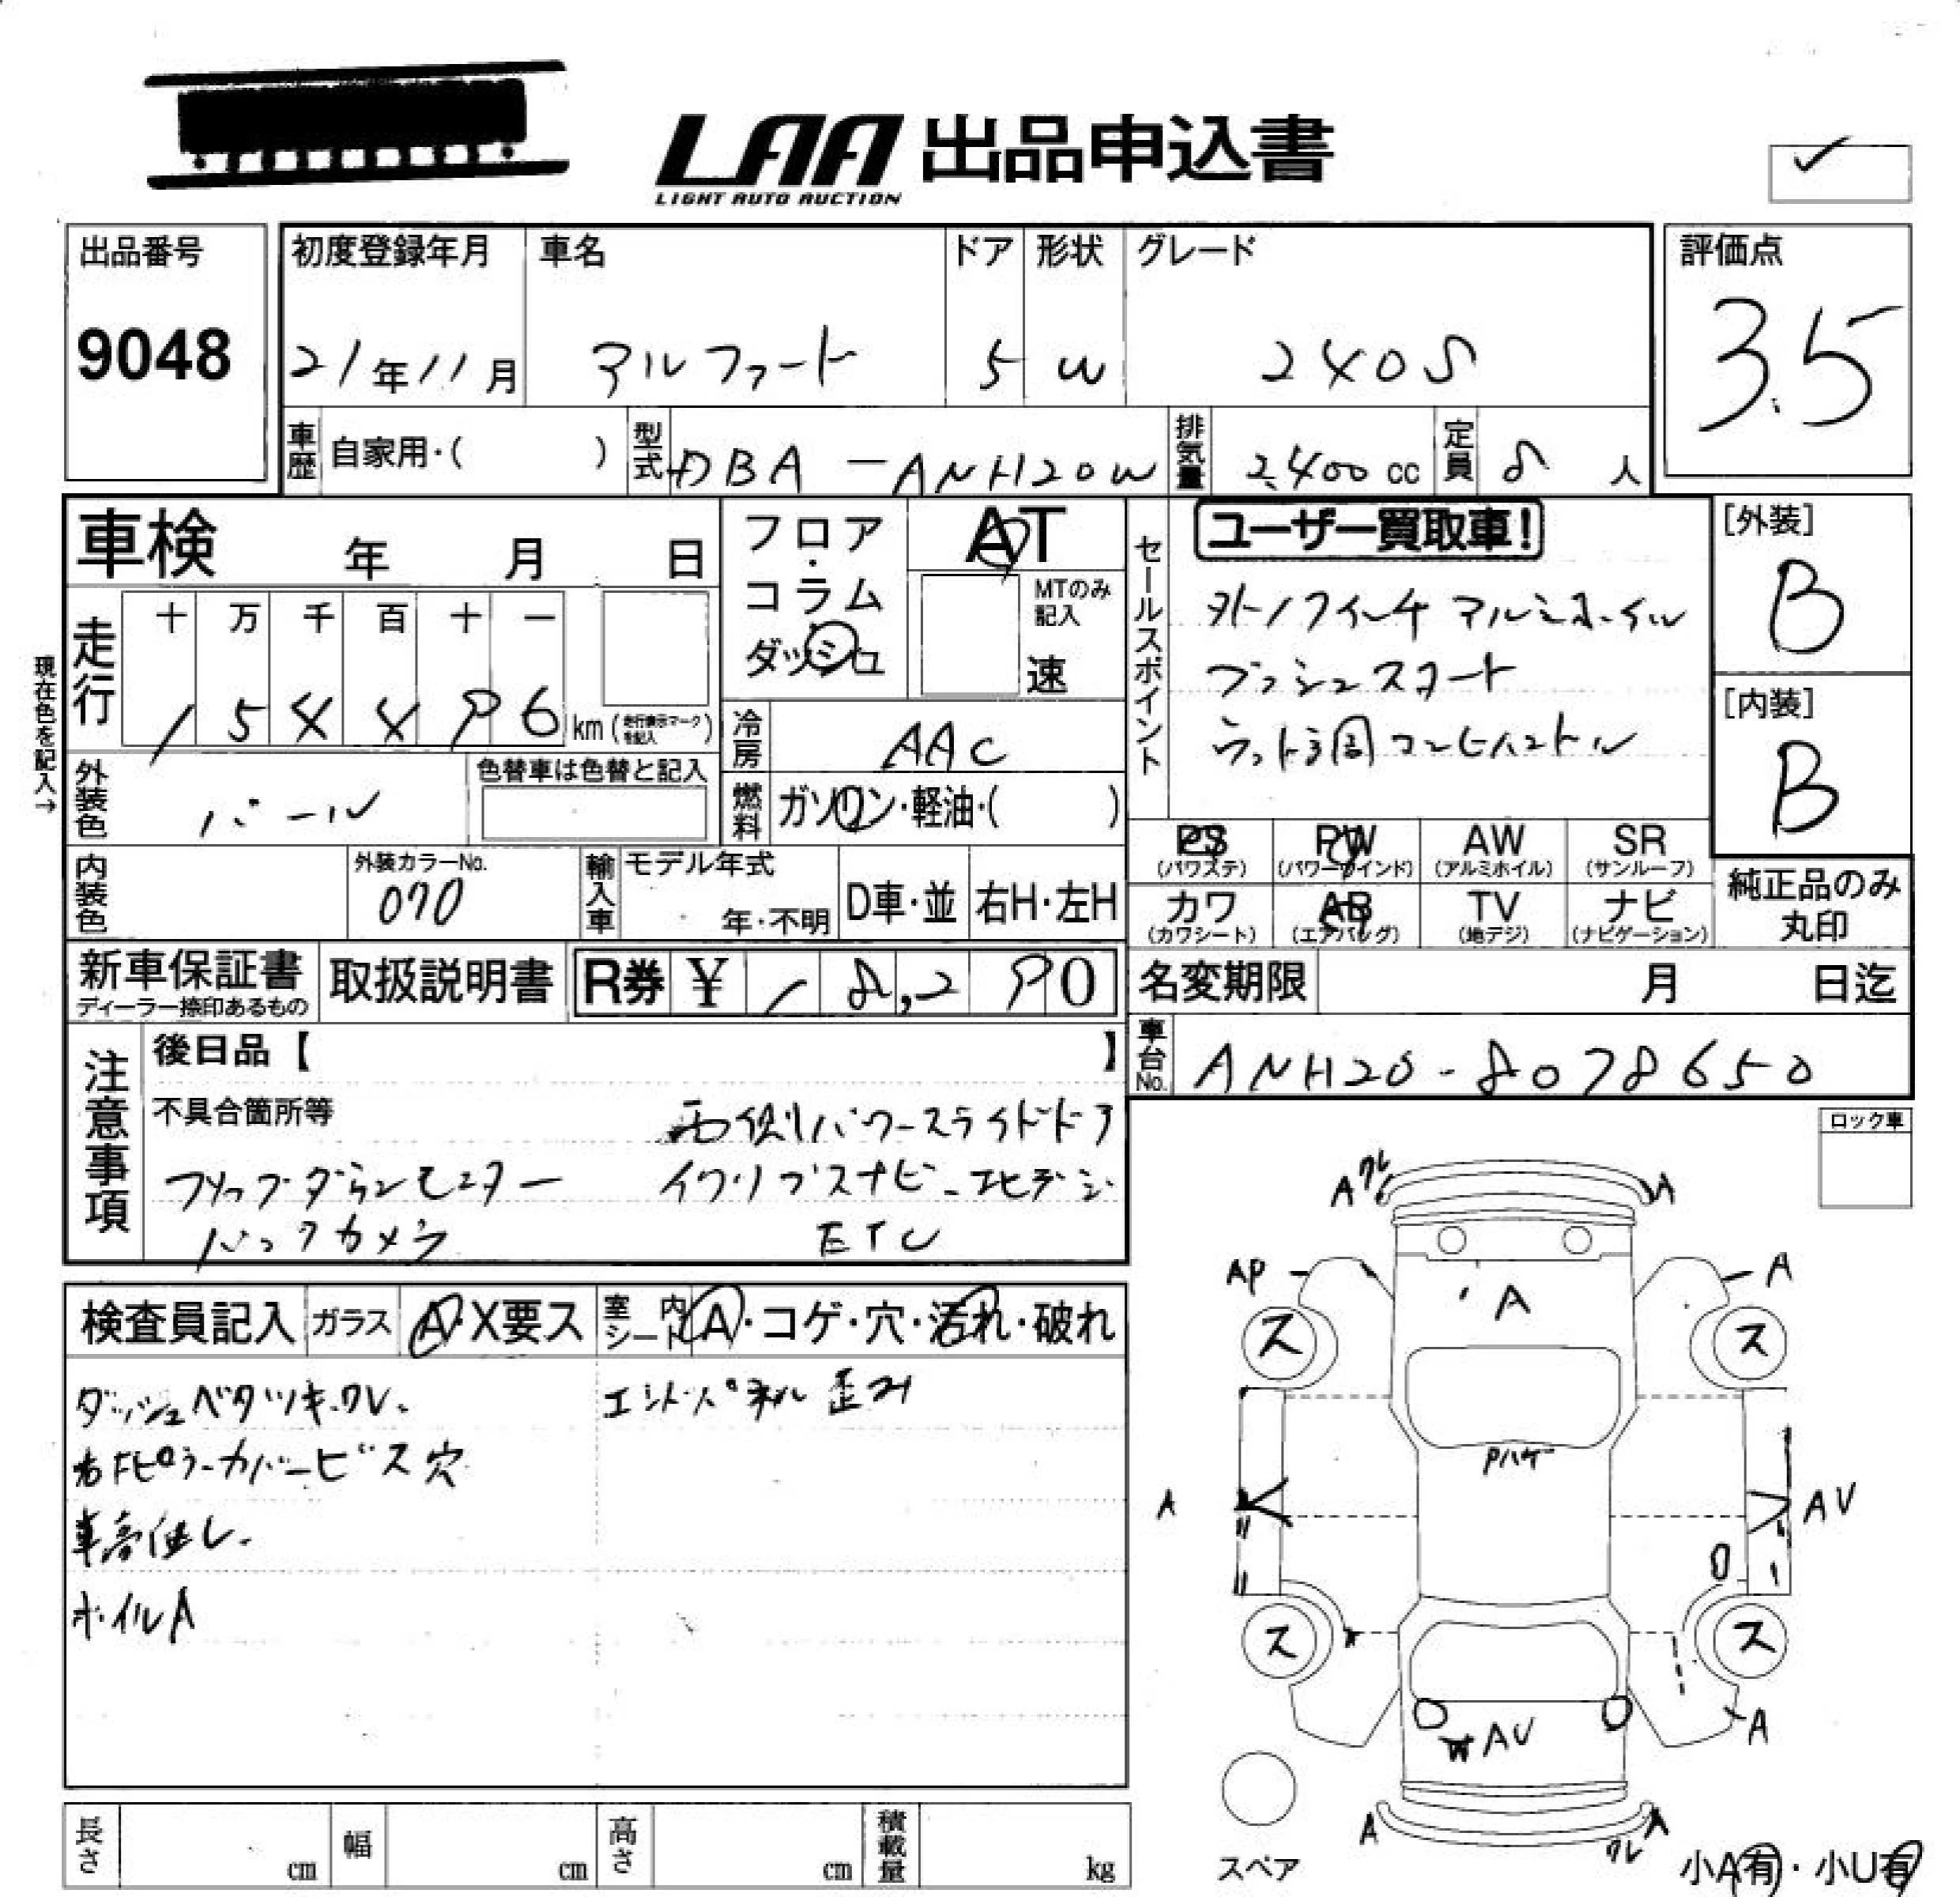 LAA 出品申込書
LIGHT AUTO AUCTION
出品番号
9048
初度登録年月
21年11月
車名
アルファード
ドア
5
形状
W
グレード
240S
評価点
3.5
車歴 自家用・( )
型式 DBA-ANH20W
排気量 2,400 cc
定員 8 人
車検 年 月 日
フロア・コラム ダッシュ
AT
MTのみ記入
速
セールスポイント
ユーザー買取車!
プッシュスタート
[外装]
B
[内装]
B
現在色を記入→
走行
十 万 千 百 十 一
1 5 4 4 9 6 km (走行表示マークを記入)
冷房 AAC
外装色 パール
色替車は色替と記入
燃料 ガソリン・軽油・( )
PS (パワステ) PW (パワーウインド) AW (アルミホイル) SR (サンルーフ)
カワ (カワシート) AB (エアバッグ) TV (地デジ) ナビ (ナビゲーション)
純正品のみ丸印
内装色
外装カラーNo.
070
輸入車 モデル年式
年・不明
D車・並 右H・左H
新車保証書
ディーラー捺印あるもの
取扱説明書
R券 ¥ 18,290
名変期限 月 日迄
車台No. ANH20-8078650
注意事項
後日品【 】
不具合箇所等
両側パワースライドドア
フリップダウンモニター
バックカメラ
ETC
ロック車
検査員記入 ガラス A・X要ス 室内シート A・コゲ・穴・汚れ・破れ
ダッシュベタツキ.クレ.
エンドパネル 歪み
右Fピラーカバービス穴
車高低し.
ホイルA
A クレ A
AP A
A
ス ス
Pハゲ
A AV
ス ス
W AV
A
A クレ A
スペア
小A有・小U有
長さ cm 幅 cm 高さ cm 積載量 kg